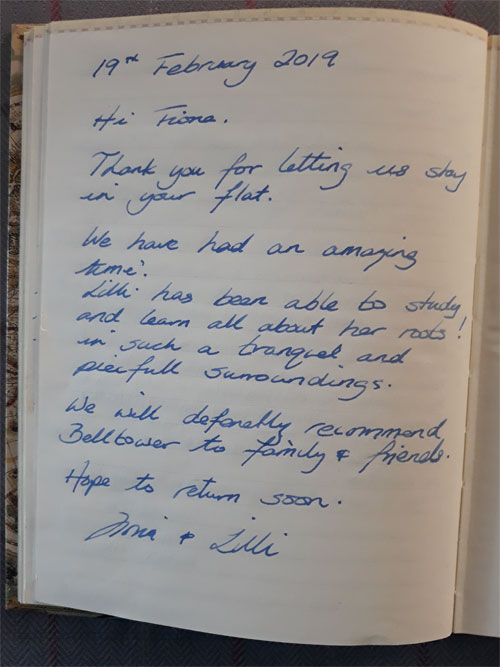 19th February 2019
Hi Fiona.
Thank you for letting us stay
in your flat.
We have had an amazing
time.
Lilli has been able to study
and learn all about her roots!
in such a tranquel and
piecfull surroundings.
We will defenatly recommend
Belltower to family & friends.
Hope to return soon.
& Lilli